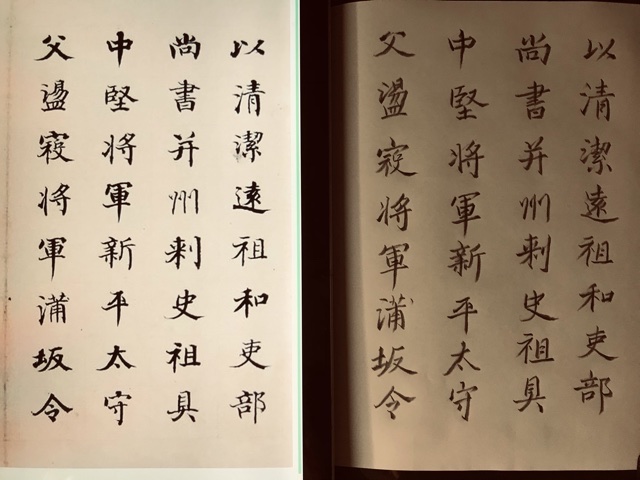 以清潔遠祖和吏部
尚書并州刺史祖具
中堅將軍新平太守
父盪寇將軍蒲坂令
以清潔遠祖和吏部
尚書并州刺史祖具
中堅將軍新平太守
父盪寇將軍蒲坂令